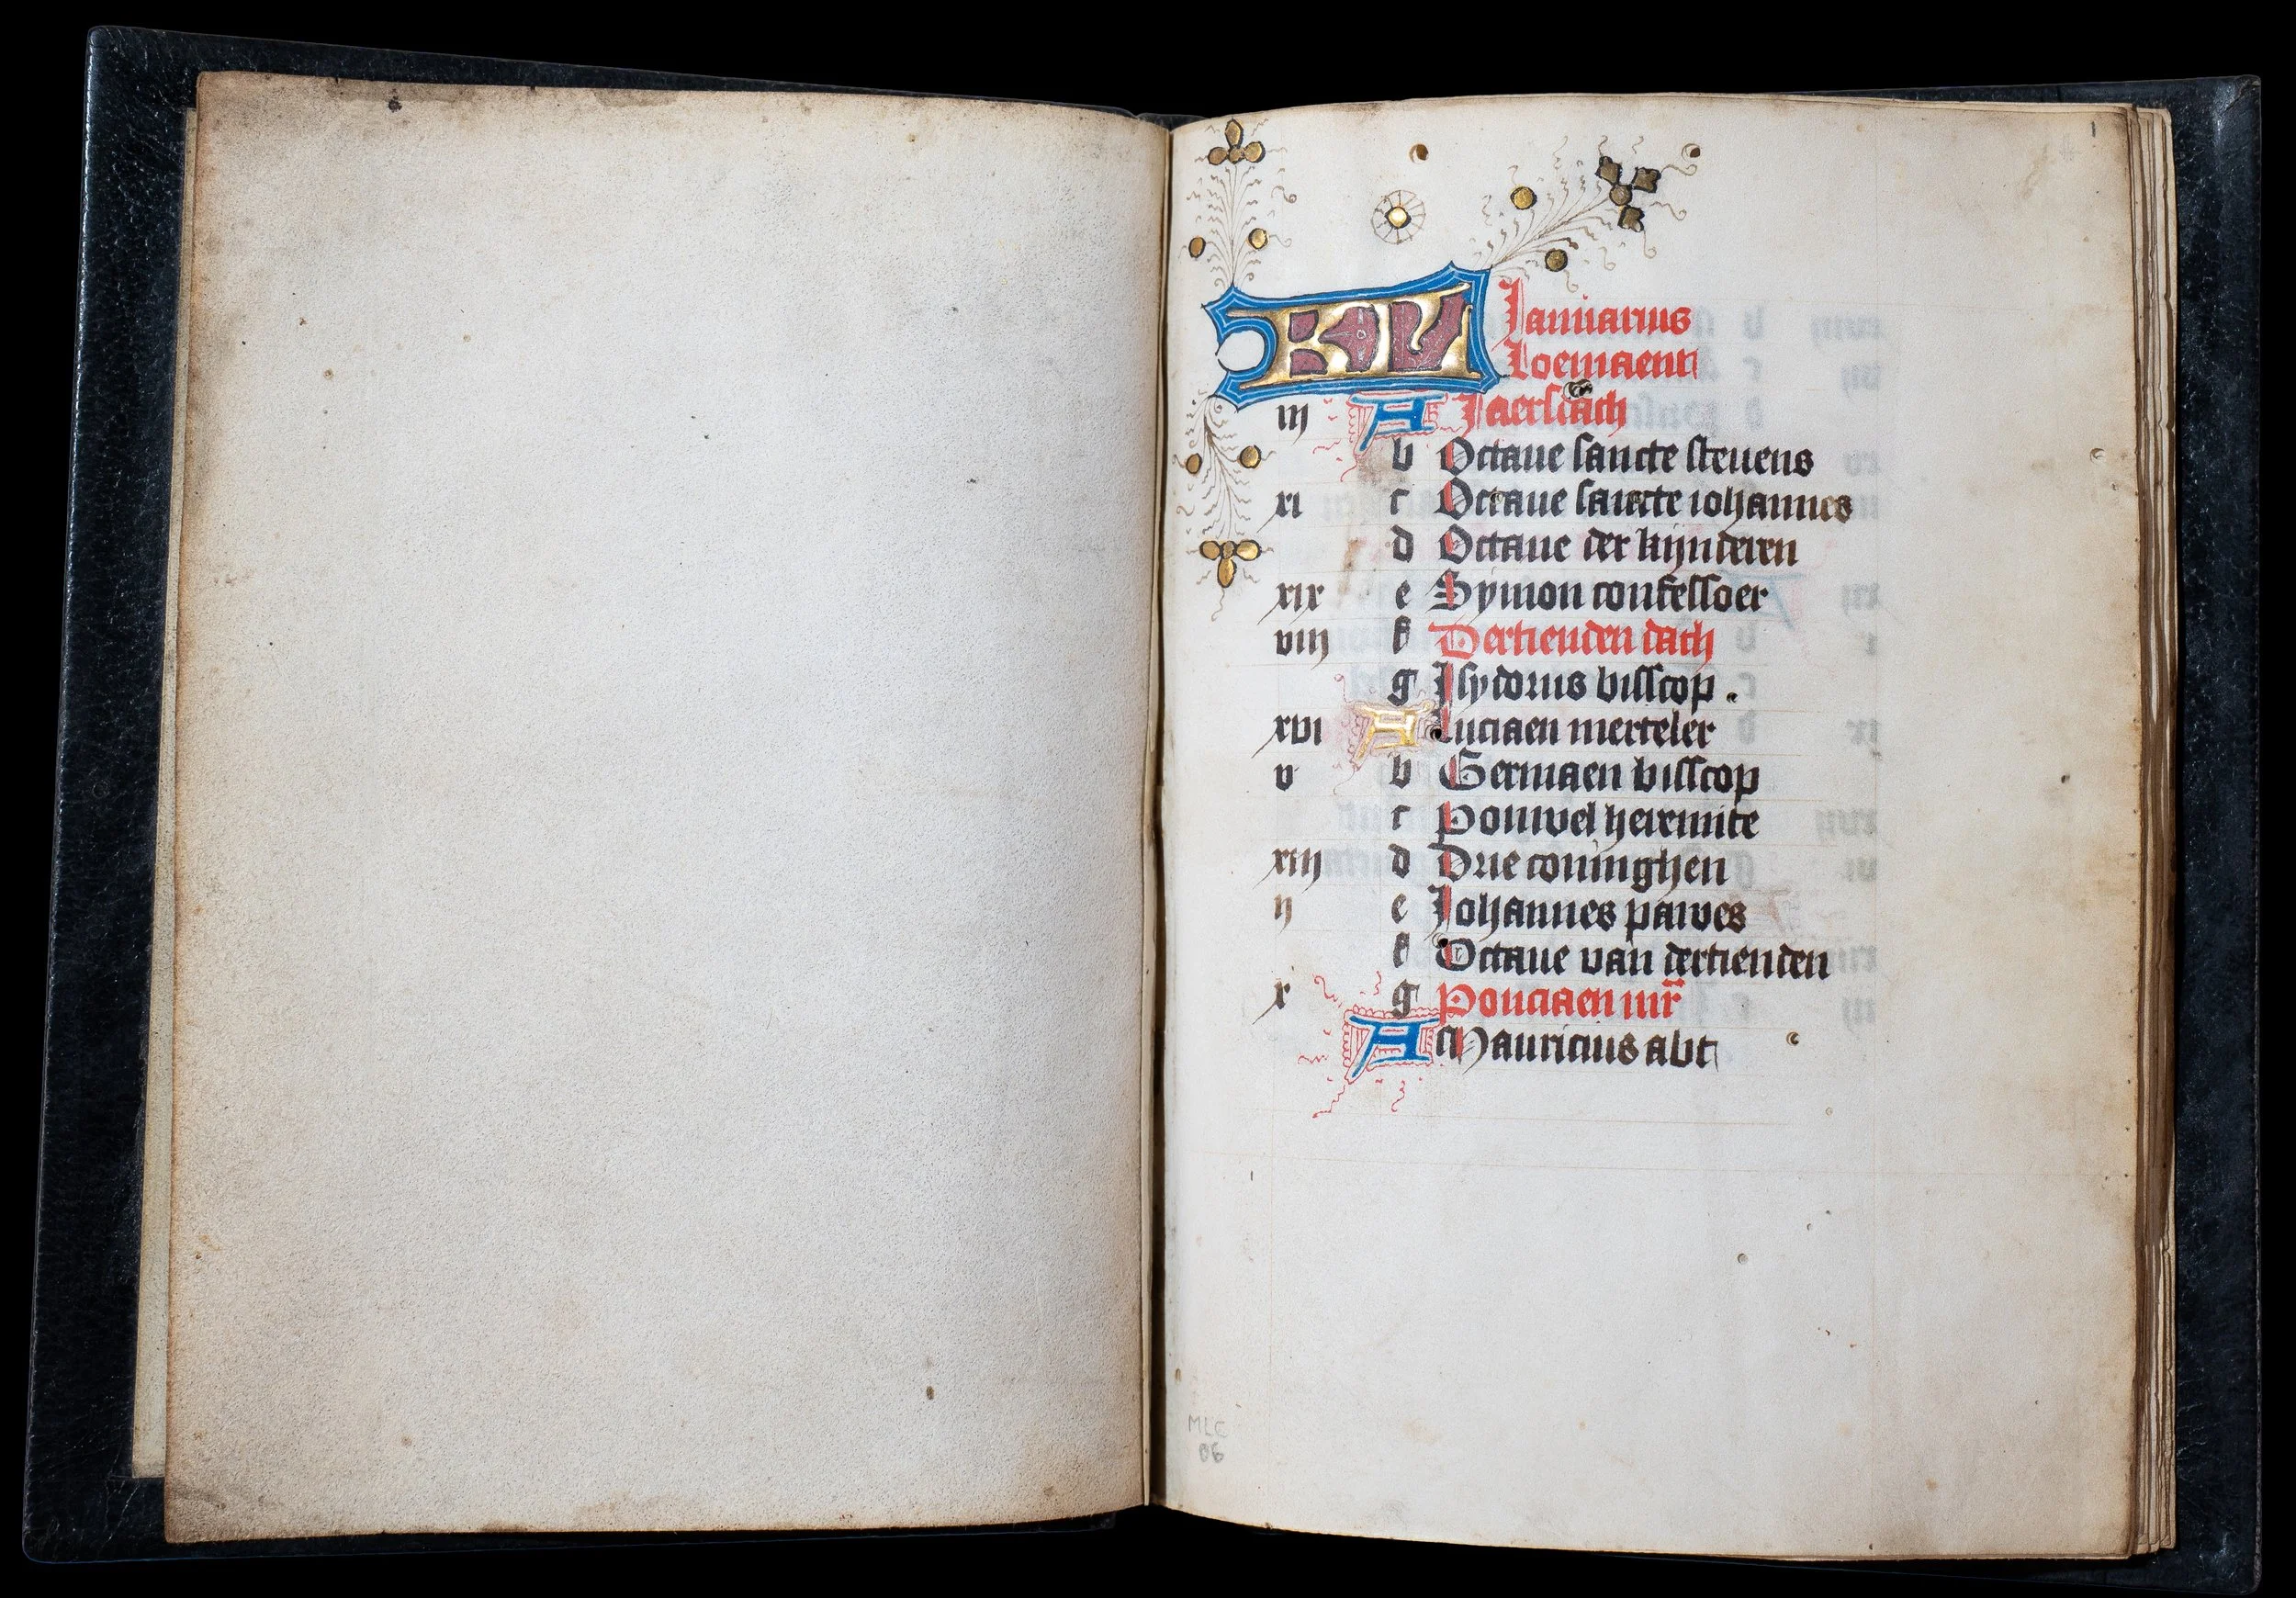 1
KL Januarius
Loemaent
iij A Jaersdach
b Octaue sancte steuens
xi c Octaue sancte iohannes
d Octaue der kijnderen
xix e Symon confessoer
viij f Dertienden dach
g Jsydorus bisscop .
xvi A Luciaen merteler
v b Germaen bisscop
c Pouwel heremite
xiij d Drie coninghen
ij e Johannes pawes
f Octaue van dertienden
x g Ponciaen mr̄
A Mauricius abt
MLC
06